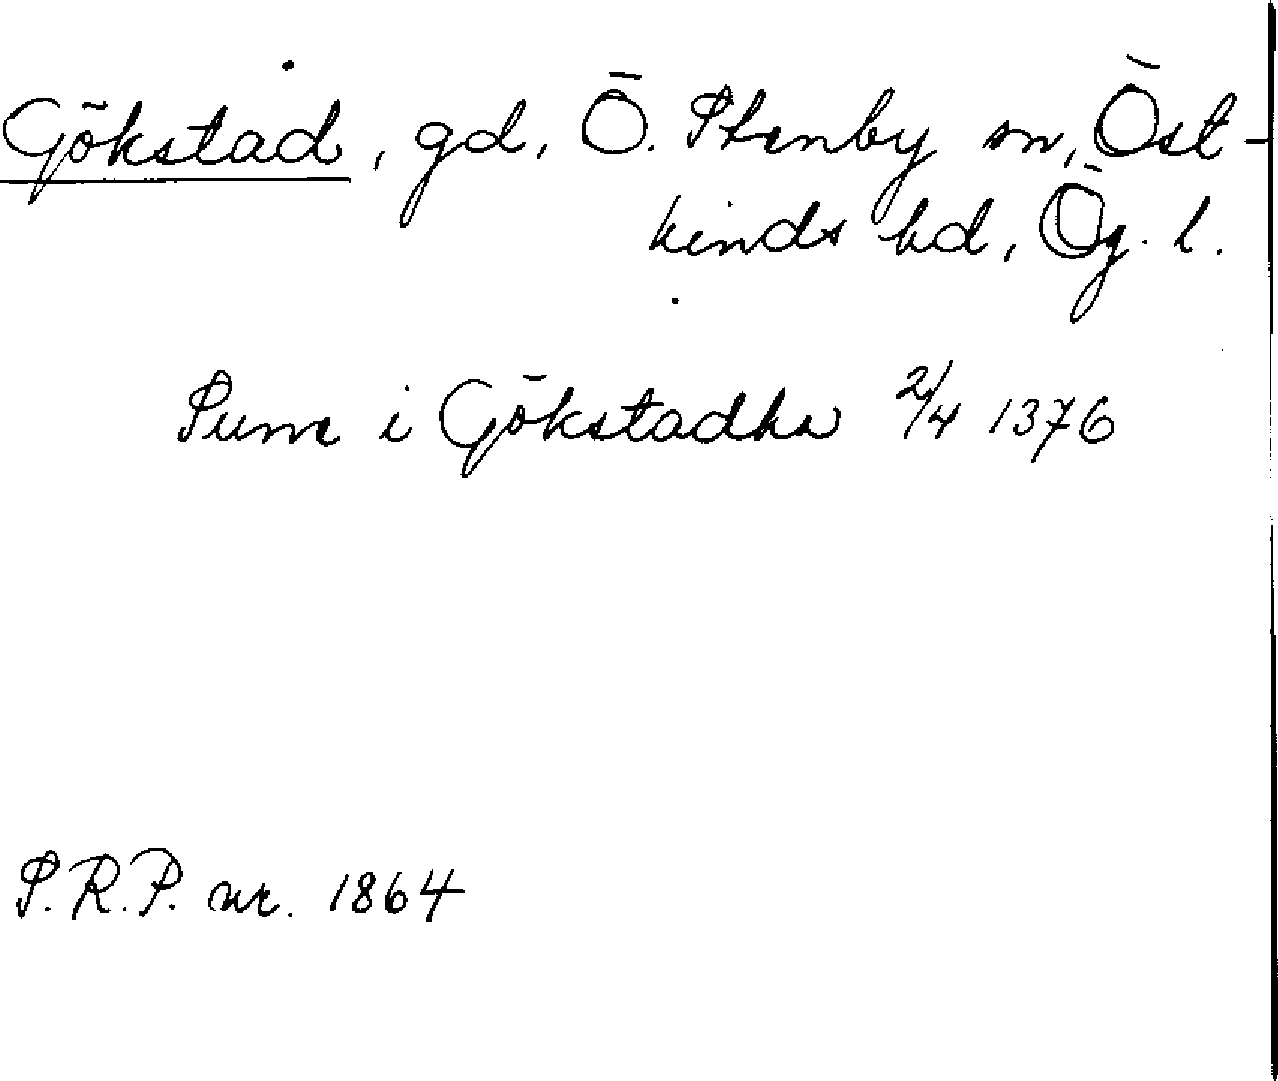 Gökstad, gd, Ö. Stenby sn, Öst-
kinds hd, Ög. l.
Sune i Gökstadha 2/4 1376
S.R.P. nr. 1864